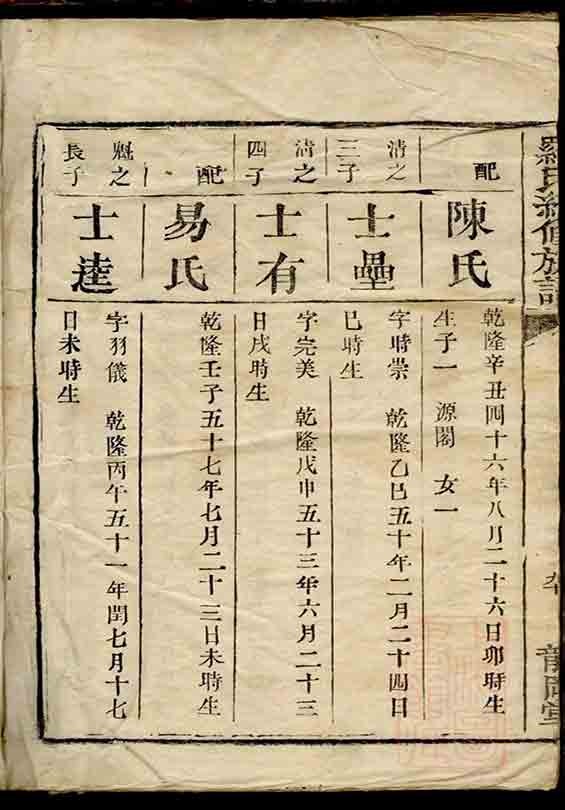 羅氏續修族譜
配
陳氏
乾隆辛丑四十六年八月二十六日卯時生
生子一 源閣 女一
清之
三子
士壘
字時崇 乾隆乙巳五十年二月二十四日
巳時生
清之
四子
士有
字完美 乾隆戊申五十三年六月二十三
日戌時生
配
易氏
乾隆壬子五十七年七月二十三日未時生
魁之
長子
士逵
字羽儀 乾隆丙午五十一年閏七月十七
日未時生